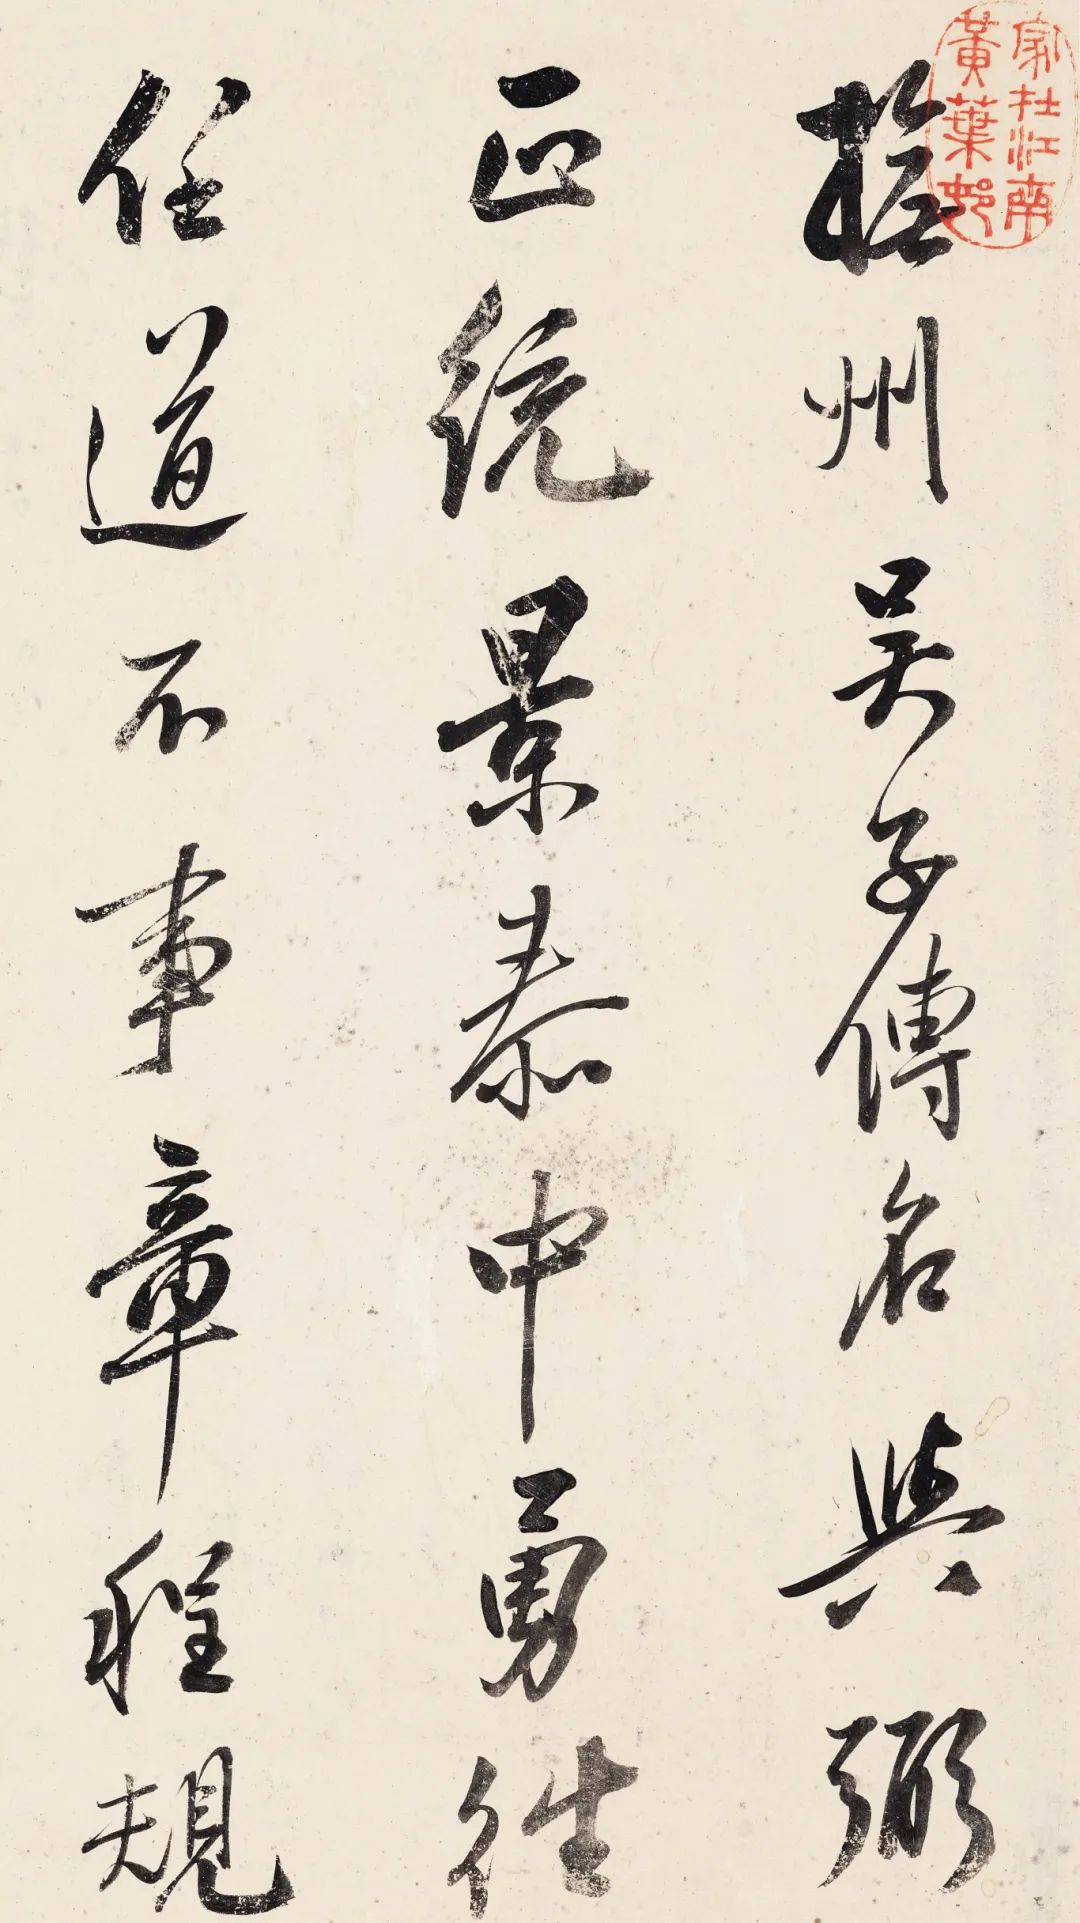 撫州吴子傳名與弼
正統景泰中勇往
任道不事章程規
家在江南
黃葉邨